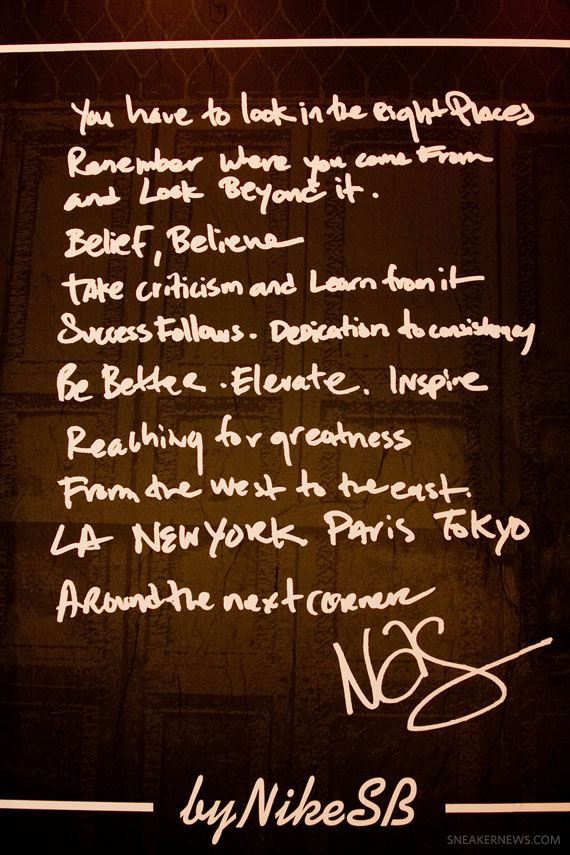 You have to look in the right Places
Remember where you come From
and Look Beyond it.
Belief, Believe
Take criticism and Learn from it
Success Follows. Dedication to consistency
Be Better. Elevate. Inspire
Reaching for greatness
From the west to the east.
LA NEW YORK PARIS TOKYO
Around the next corner
NaS
byNikeSB
SNEAKERNEWS.COM